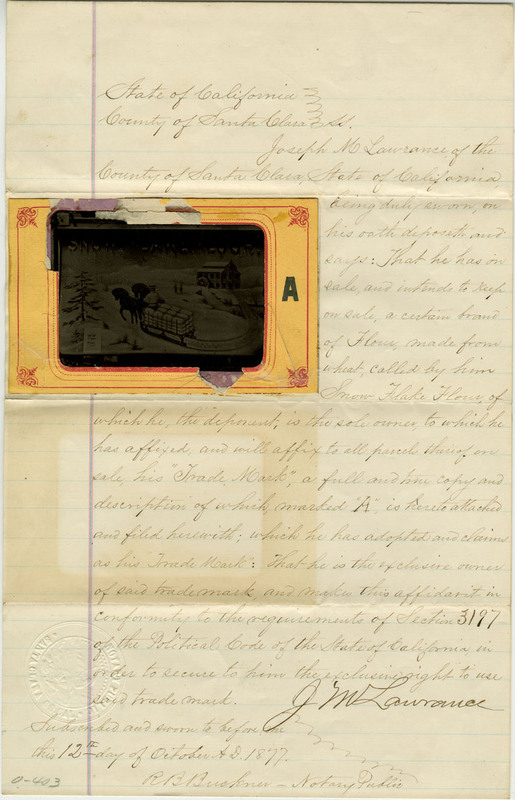 State of California
County of Santa Clara } SS.
Joseph M Lawrance, of the
County of Santa Clara, State of California,
being duly sworn, on
his oath deposeth and
says: That he has on
sale, and intends to keep
on sale, a certain brand
of Flour, made from
wheat, called by him
Snow Flake Flour, of
A
which he, the deponent, is the sole owner, to which he
has affixed, and will affix to all parcels thereof on
sale, his "Trade Mark", a full and true copy and
description of which, marked "A", is hereto attached
and filed herewith; which he has adopted and claims
as his Trade Mark: That he is the exclusive owner
of said trade mark, and makes this affidavit in
conformity to the requirements of Section 3197
of the Political Code of the State of California, in
order to secure to him the exclusive right to use
said trade mark.
J M Lawrance
Subscribed and sworn to before me
this 12th day of October A.D. 1877.
R B Buckner - Notary Public
0-403